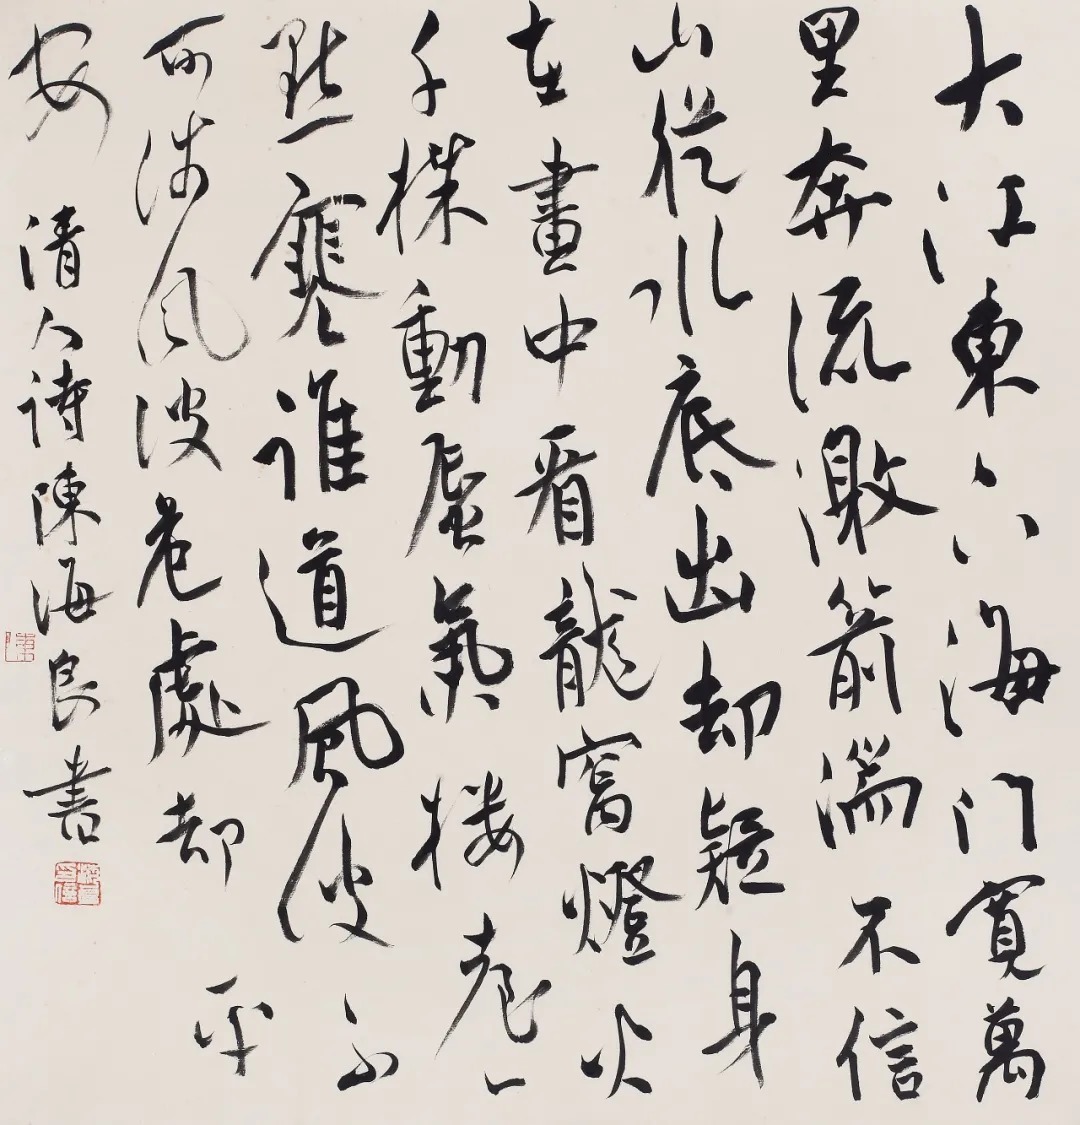 大江東下海門寬萬
里奔流激箭湍不信
山從水底出却疑身
在畫中看龍窩燈火
千動蜃氣樓臺一
點寒誰道風波不
可涉風波危處却平
安
清人詩陳海良書